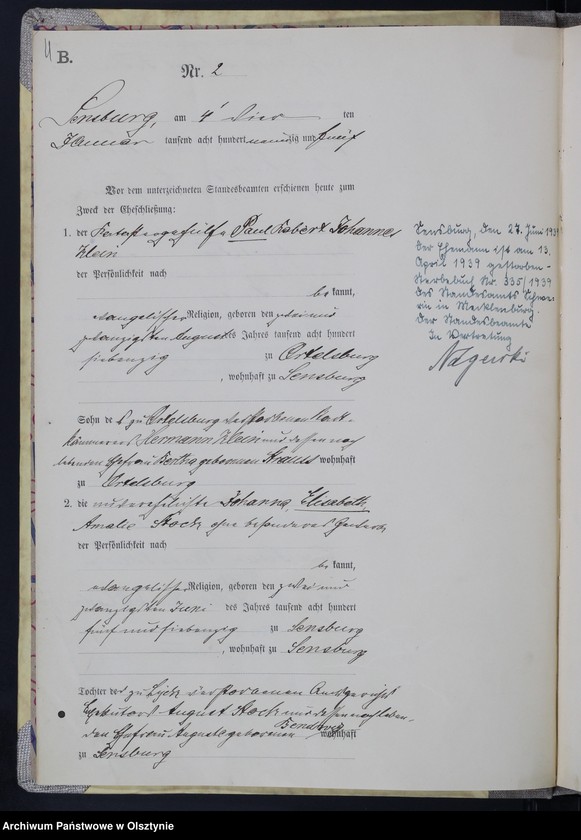 B.
Nr. 2
Sensburg, am 4 ten
Januar tausend acht hundert neunzig und fünf
Vor dem unterzeichneten Standesbeamten erschienen heute zum
Zweck der Eheschließung:
1. der Paul Robert Johannes
Klein
der Persönlichkeit nach
be kannt,
evangelischer Religion, geboren den zwei und
zwanzigsten August des Jahres tausend acht hundert
siebenzig zu Ortelsburg
, wohnhaft zu Sensburg
Sohn de s zu Ortelsburg verstorbenen
Hermann Klein und dessen nach
lebenden Ehefrau Bertha geborenen wohnhaft
zu Ortelsburg
2. die unverehelichte Johanna Elisabeth
Amalie ohne besonderes Gewerbe
der Persönlichkeit nach
be kannt,
evangelischer Religion, geboren den zwei und
zwanzigsten Juni des Jahres tausend acht hundert
fünf und siebenzig zu Sensburg
, wohnhaft zu Sensburg
Tochter des zu Lyck verstorbenen
August und dessen nachleben-
den Ehefrau Auguste geborenen wohnhaft
zu Sensburg
Sensburg, den 27. Juni 1939
Der Ehemann ist am 13.
April 1939 gestorben -
Sterbebuch Nr. 335/1939
des Standesamts Schwe-
rin in Mecklenburg.
Der Standesbeamte
In Vertretung
Archiwum Państwowe w Olsztynie